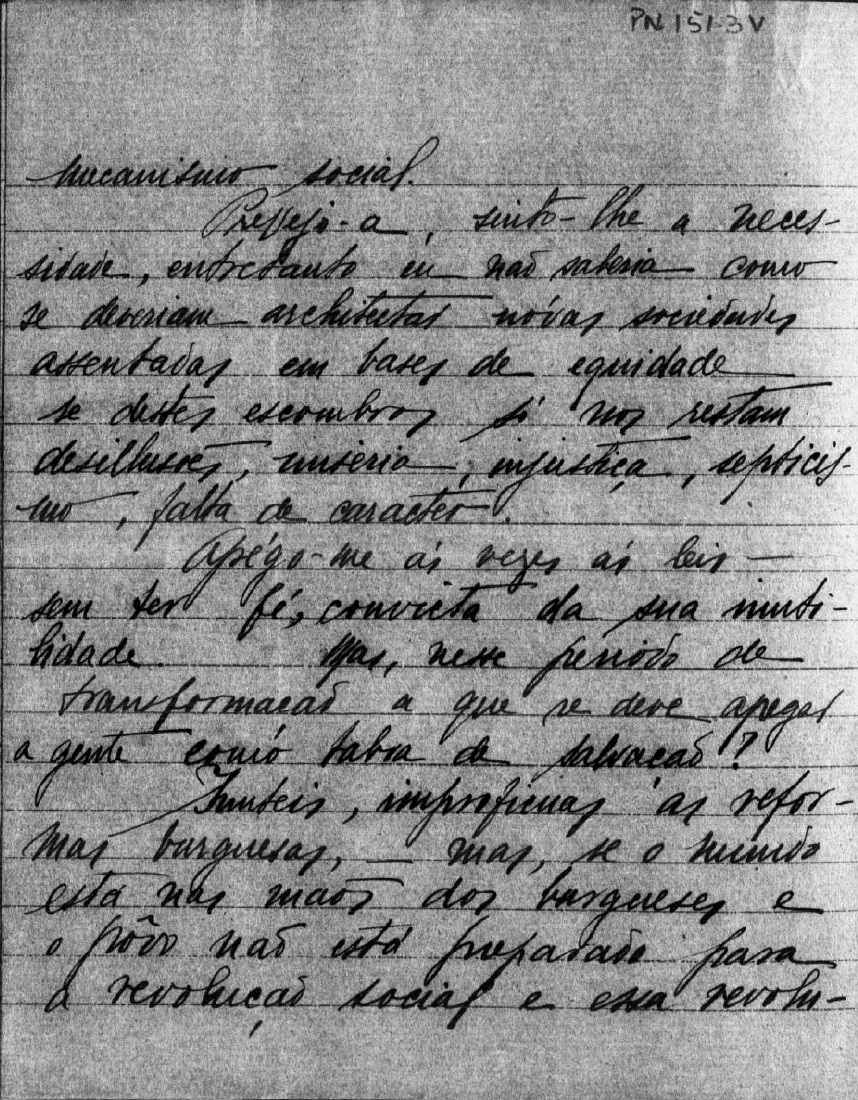 PN 151-3V
mecanismo social.
Prevejo-a, sinto-lhe a neces-
sidade, entretanto eu não saberia como
se deveriam architectar nóvas sociedades
assentadas em bases de equidade
se destes escombros só nos restam
desillusões, miseria, injustiça, septicis-
mo, falta de caracter.
Apégo-me ás vezes ás leis —
sem ter fé, convicta da sua inuti-
lidade. Mas, nesse periodo de
transformacaõ a que se deve apegar
a gente como taboa de salvacaõ?
Inuteis, improficuas as refor-
mas burguesas, — mas, se o mundo
está nas maõs dos burgueses e
o pôvo naõ está preparado para
a revoluçaõ social e essa revolu-